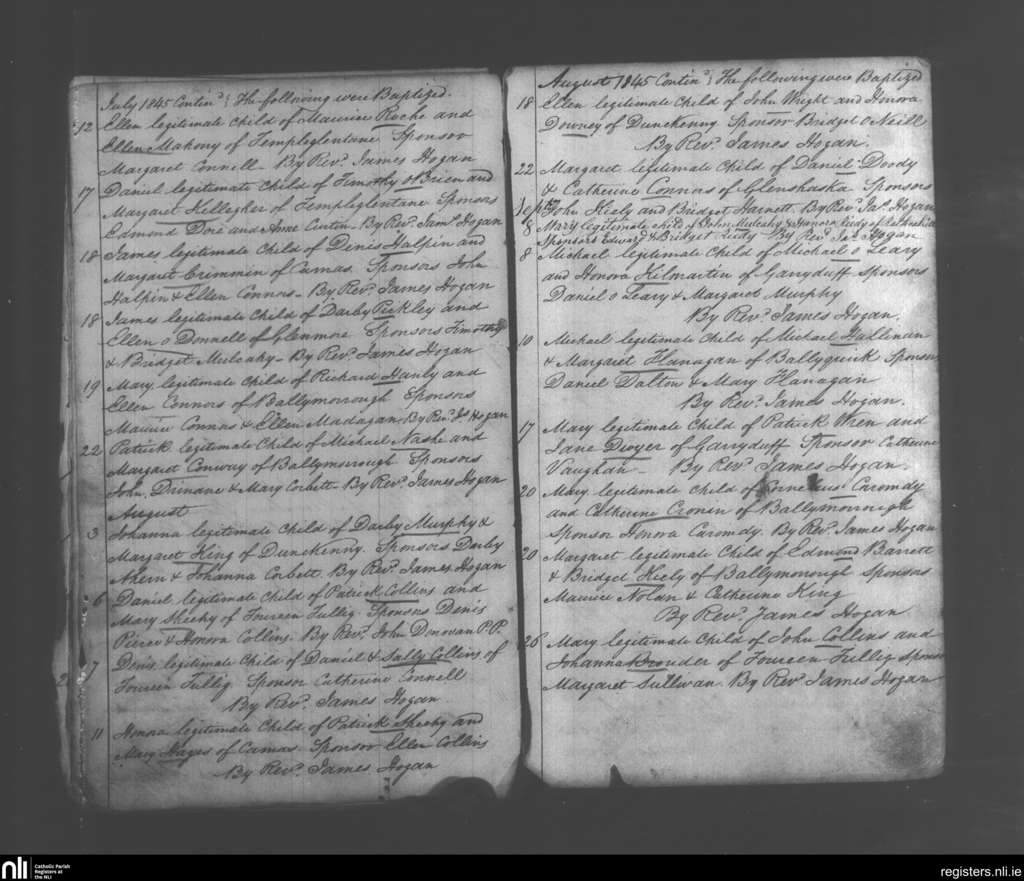 July 1845 Contind; The following were Baptized.
12 Ellen legitimate Child of Maurice Roche and
Ellen Mahony of Templeglentane Sponsor
Margaret Connell. By Revd. James Hogan
17 Daniel legitimate Child of Timothy O Brien and
Margaret Kellegher of Templeglentane Sponsors
Edmond Dore and Anne Curtin. By Revd. Jams. Hogan
18 James legitimate Child of Denis Halpin and
Margaret Crimmin of Camas. Sponsors John
Halpin & Ellen Connors - By Revd. James Hogan
18 James legitimate Child of Darby and
Ellen o Donnell of Glenmore Sponsors Timothy
& Bridget Mulcahy - By Revd. James Hogan
19 Mary legitimate Child of Richard Hanly and
Ellen Connors of Ballymorrough Sponsors
Maurice Connors & Ellen Madagan. By Revd. Js Hogan
22 Patrick legitimate Child of Michael Nashe and
Margaret Conway of Ballymorough Sponsors
John Drinane & Mary Corbett - By Revd. James Hogan
August
3 Johanna legitimate Child of Darby Murphy &
Margaret King of Dunekenny. Sponsors Darby
Ahern & Johanna Corbett. By Revd. James Hogan
6 Daniel legitimate Child of Patrick Collins and
Mary Sheehy of Foureen Tullig. Sponsors Denis
Pierce & Honora Collins. By Revd. John Donovan P.P.
7 Denis legitimate Child of Daniel & Sally Collins of
Foureen Tullig. Sponsor Catherine Connell
By Revd. James Hogan
11 Honora legitimate Child of Patrick Sheehy and
Mary Hayes of Camas. Sponsor Ellen Collins
By Revd. James Hogan
August 1845 Contind; The following were Baptized
18 Ellen legitimate Child of John Wright and Honora
Downey of Dunekenny Sponsor Bridget o Neill
By Revd. James Hogan.
22 Margaret legitimate Child of Daniel Doody
& Catherine Connors of Glenshaska Sponsors
John Kiely and Bridget Harnett. By Revd. Jas. Hogan
Septbr
8 Mary legitimate Child of John Mulcahy & Honora Reidy of
Sponsors Edward & Bridget Reidy By Revd. Jas Hogan
8 Michael legitimate Child of Michael o Leary
and Honora Kilmartin of Garryduff Sponsors
Daniel o Leary & Margaret Murphy
By Revd. James Hogan.
10 Michael legitimate Child of Michael Hallinan
& Margaret Flanagan of Sponsors
Daniel Dalton & Mary Flanagan
By Revd. James Hogan.
17 Mary legitimate Child of Patrick Wren and
Jane Dwyer of Garryduff Sponsor Catherine
Vaughan - By Revd. James Hogan.
20 Mary legitimate Child of Cornelius Caromdy
and Catherine Cronin of Ballymorough
Sponsor Honora Caromdy. By Revd. James Hogan
20 Margaret legitimate Child of Edmond Barrett
& Bridget Kiely of Ballymorough Sponsors
Maurice Nolan & Catherine King
By Revd. James Hogan
26 Mary legitimate Child of John Collins and
Johanna Brouder of Foureen Tullig Sponsor
Margaret Sullivan By Revd James Hogan
nli Catholic Parish
Registers at
the NLI
registers.nli.ie